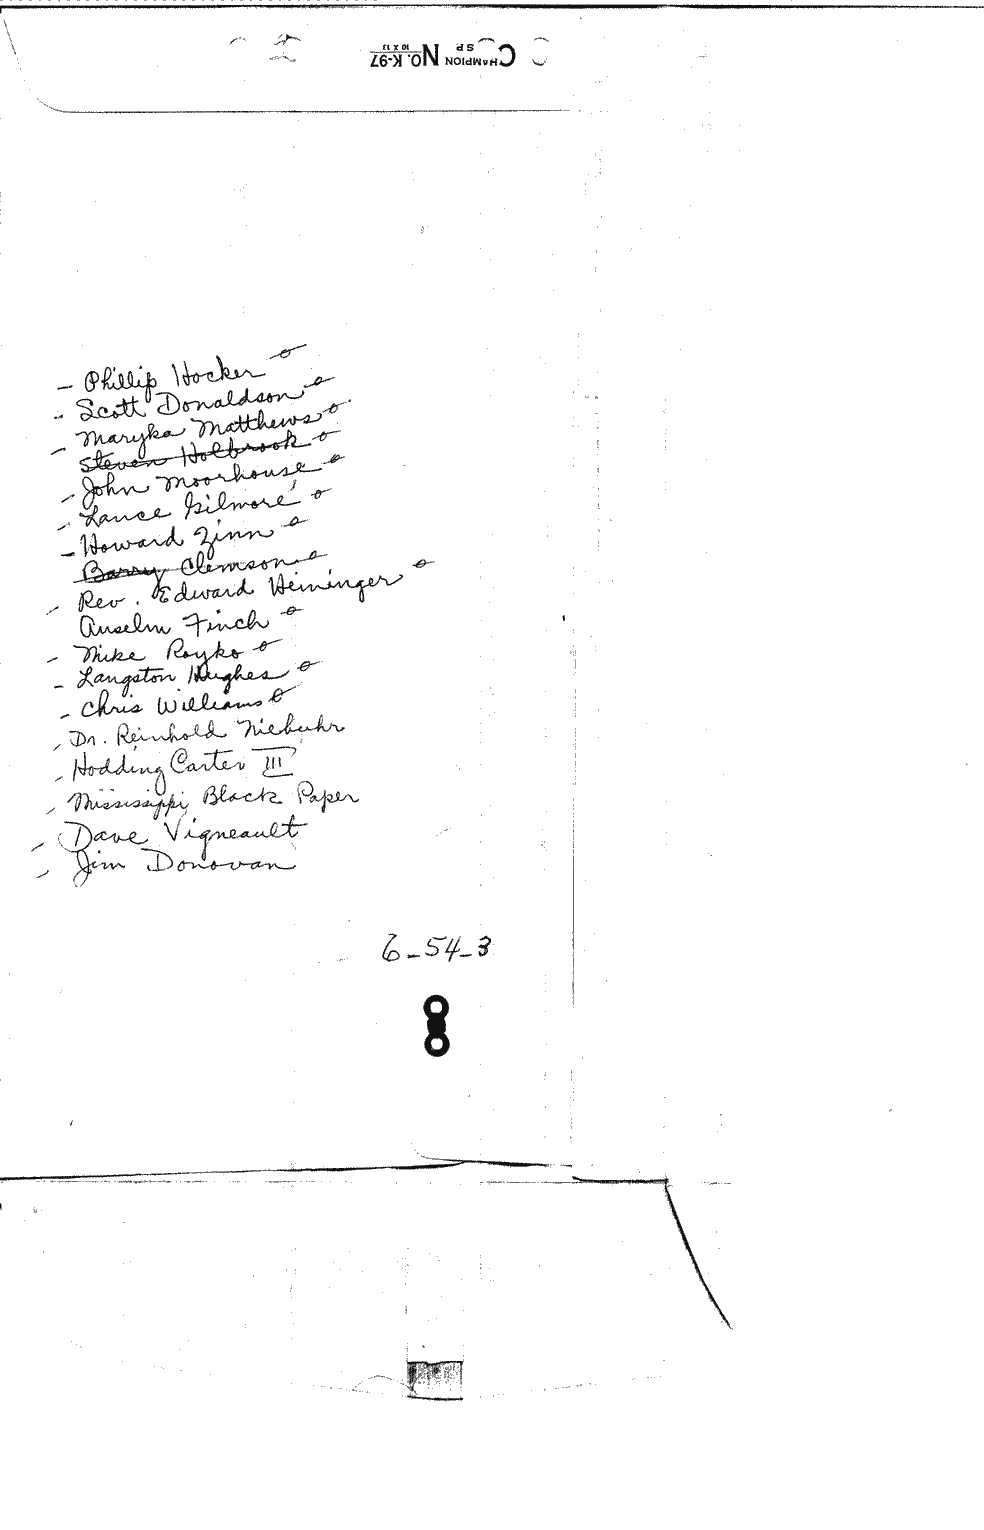 CHAMPION SP NO. K-97 10 X 13
- Phillip Hocker
- Scott Donaldson
- Maryka Matthews
Steven Holbrook
- John Moorhouse
- Lance Gilmore
- Howard Zinn
Barry Clemson
- Rev. Edward Heininger
Anselm Finch
- Mike Royko
- Langston Hughes
- Chris Williams
- Dr. Reinhold Niebuhr
- Hodding Carter III
- Mississippi Black Paper
- Dave Vigneault
- Jim Donovan
6-54-3